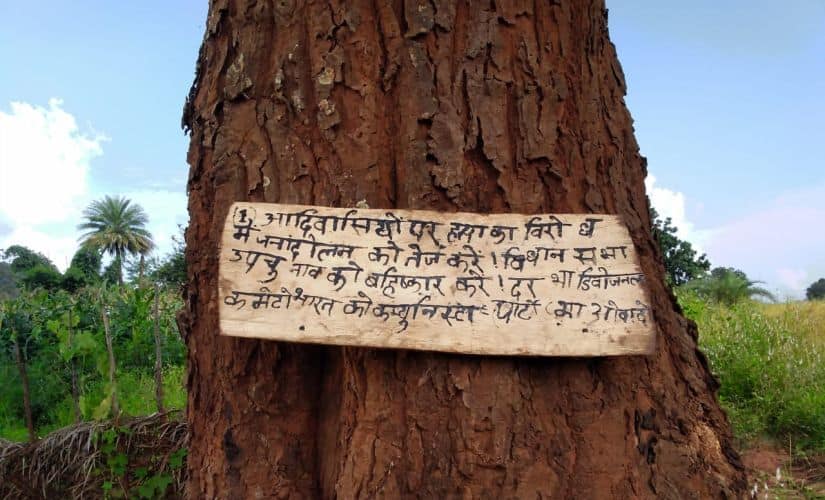 (1) आदिवासियों पर हत्या का विरोध
में जनांदोलन को तेज करें! विधान सभा
उपचुनाव को बहिष्कार करें! दरभा डिवीजनल
कमेटी भारत को कम्युनिस्ट पार्टी (माओवादी